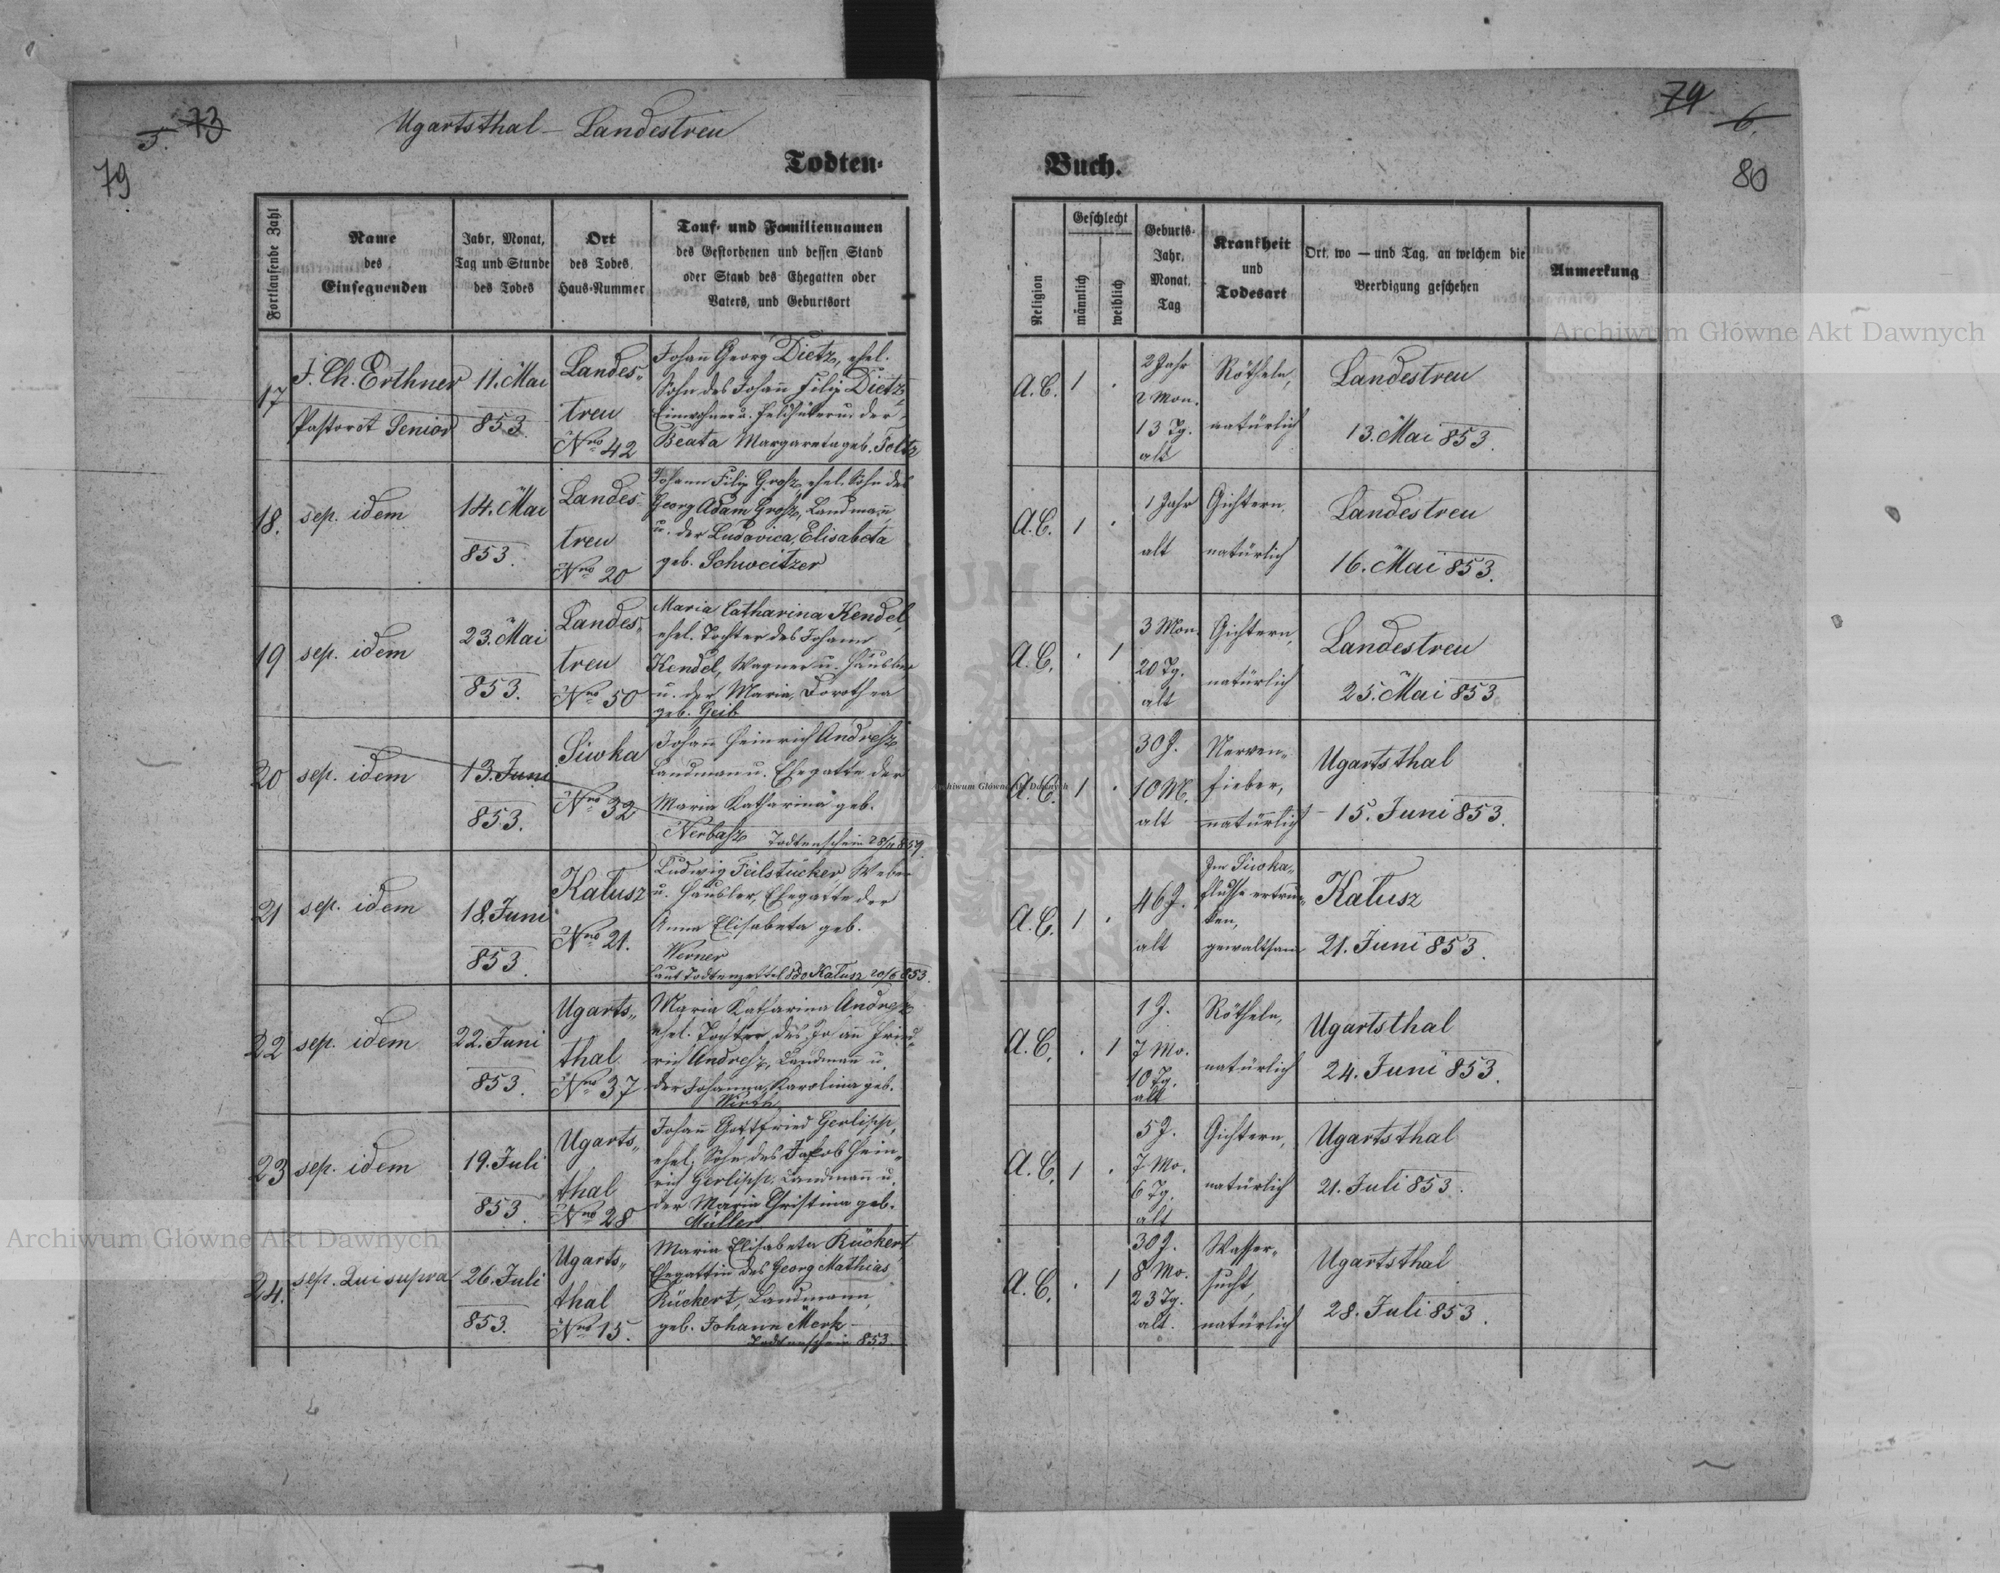 5. 73
79
Ugartsthal – Landestreu
Todten-
Fortlaufende Zahl
Name
des
Einsegnenden
Jahr, Monat,
Tag und Stunde
des Todes
Ort
des Todes,
Haus-Nummer
Tauf- und Familiennamen
des Gestorbenen und dessen Stand
oder Stand des Ehegatten oder
Vaters, und Geburtsort
17
J. Ch. Erthner
Pastor et Senior
11. Mai
853.
Landes-
treu
Nro 42
Johañ Georg Dietz, ehel.
Sohn des Johañ Filip Dietz,
Einwohner u. Feldhüter u. der
Beata Margareta geb. Foltz
18.
sep. idem
14. Mai
853.
Landes-
treu
Nro 20
Johann Filip Grosz, ehel. Sohn des
Georg Adam Grosz, Landmañ
u. der Ludovica Elisabeta
geb. Schweitzer
19
sep. idem
23. Mai
853.
Landes-
treu
Nro 50
Maria Catharina Kendel,
ehel. Tochter des Johann
Kendel, Wagner u. Häusler
u. der Maria Dorothea
geb. Geib
20
sep. idem
13. Juni
853.
Siwka
Nro 32
Johañ Heinrich Andresz
Landmann u. Ehegatte der
Maria Katharina geb.
Nerbasz Todtenschein 28/11 859.
21
sep. idem
18. Juni
853.
Kalusz
Nro 21.
Ludwig Feilstücker Weber
u. Häusler, Ehegatte der
Anna Elisabeta geb.
Werner
laut Todtenzettel ddo Kalusz 20/6 853.
22
sep. idem
22. Juni
853.
Ugarts-
thal
Nro 37
Maria Katharina Andresz
ehel. Tochter des Johañ Fried-
rich Andresz, Landmañ u.
der Johanna Karolina geb.
Wirth
23
sep. idem
19. Juli
853.
Ugarts-
thal
Nro 28
Johañ Gottfried Gerlipp,
ehel. Sohn des Jakob Hein-
rich Gerlipp, Landmañ u.
der Maria Christina geb.
Müller
24.
sep. Qui supra
26. Juli
853.
Ugarts-
thal
Nro 15.
Maria Elisabeta Rückert,
Ehegattin des Georg Mathias
Rückert, Landmann,
geb. Johann Merk
Todtenschein 853.
79 6.
80
Buch.
Religion
Geschlecht
männlich
weiblich
Geburts-
Jahr,
Monat,
Tag
Krankheit
und
Todesart
Ort, wo — und Tag, an welchem die
Beerdigung geschehen
Anmerkung
A.C. 1 .
2 Jahr
2 Mon.
13 Tg.
alt
Rötheln,
natürlich
Landestreu
13. Mai 853.
A.C. 1 .
1 Jahr
alt
Gichtern,
natürlich
Landestreu
16. Mai 853.
A.C. . 1
3 Mon.
20 Tg.
alt
Gichtern,
natürlich
Landestreu
25. Mai 853.
A.C. 1 .
30 J.
10 M.
alt
Nerven-
fieber,
natürlich
Ugartsthal
15. Juni 853.
A.C. 1 .
46 J.
alt
Im Siwka-
flusse ertrun-
ken,
gewaltsam
Kalusz
21. Juni 853.
A.C. . 1
1 J.
7 Mo.
10 Tg.
alt
Rötheln,
natürlich
Ugartsthal
24. Juni 853.
A.C. 1 .
5 J.
7 Mo.
6 Tg.
alt
Gichtern,
natürlich
Ugartsthal
21. Juli 853.
A.C. . 1
30 J.
8 Mo.
23 Tg.
alt.
Wasser-
sucht,
natürlich
Ugartsthal
28. Juli 853.
Archiwum Główne Akt Dawnych
Archiwum Główne Akt Dawnych
Archiwum Główne Akt Dawnych